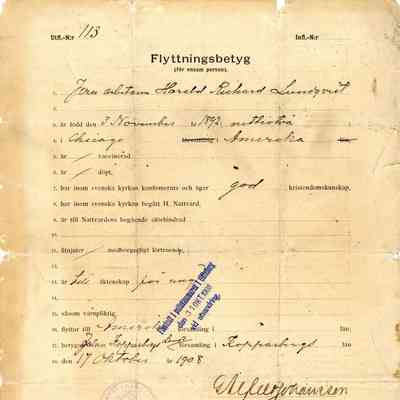 Utfl.-N:r 113 Infl.-N:r
Flyttningsbetyg
(för ensam person).
1. Harald Richard Lundqvist
2.
3. är född den 3 November år 1892, nittiotvå
4. i Chicago Amerika län
5. är / vaccinerad.
6. är / döpt,
7. har inom svenska kyrkan konfirmerats och äger god kristendomskunskap,
8. har inom svenska kyrkan begått H. Nattvard.
9. är till Nattvardens begående oförhindrad
10.
11. åtnjuter / medborgerligt förtroende,
12.
13. är till äktenskap för ung
14.
15. såsom värnpliktig
16. flyttar till Amerika församling i län;
17. betygar Stora Kopparbergs församling i Kopparbergs län
18. den 17 Oktober år 1908
31 OKT 1908
Johansson